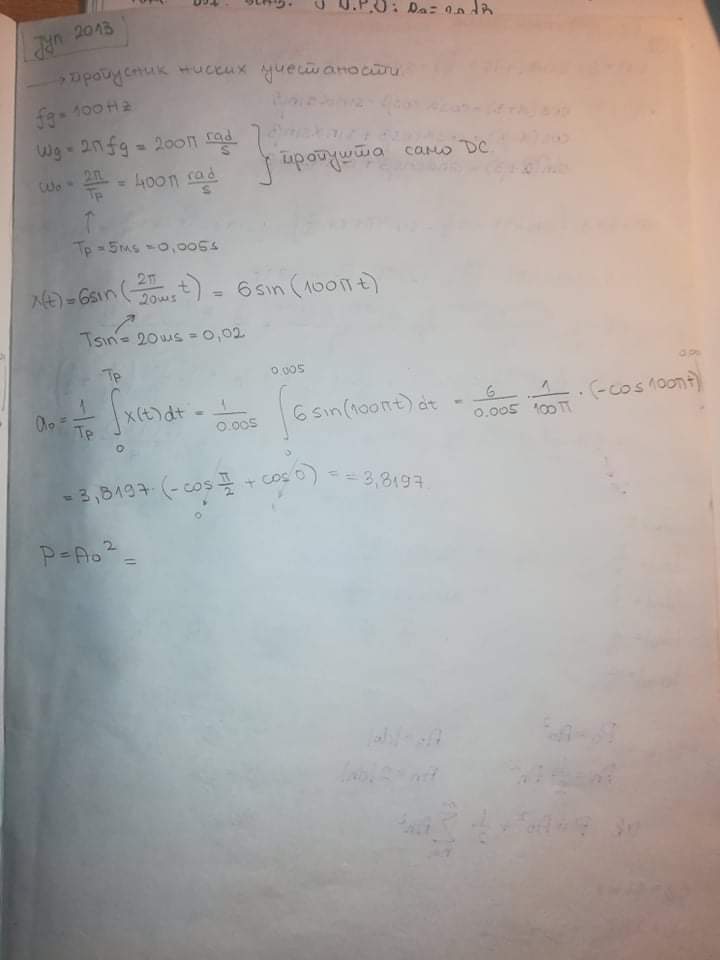 U.P.O:
јул 2013
→ пропусник ниских учестаности.
fg = 100Hz
ωg = 2πfg = 200π rad/s
ω0 = 2π/Tp = 400π rad/s } пропушта само DC.
↑
Tp = 5ms = 0,005s
x(t) = 6sin(2π/20ms t) = 6sin(100πt)
Tsin = 20ms = 0,02
a0 = 1/Tp ∫0^Tp x(t)dt = 1/0.005 ∫0^0.005 6sin(100πt)dt = 6/0.005 · 1/100π · (-cos100πt)
= 3,8197 · (-cos π/2 + cos 0) = = 3,8197
0 1
P = A0² =